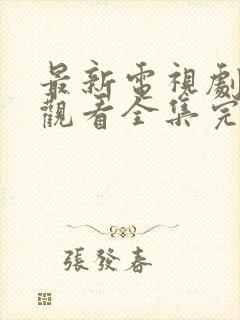 最新電視劇
觀看全集完
張發春